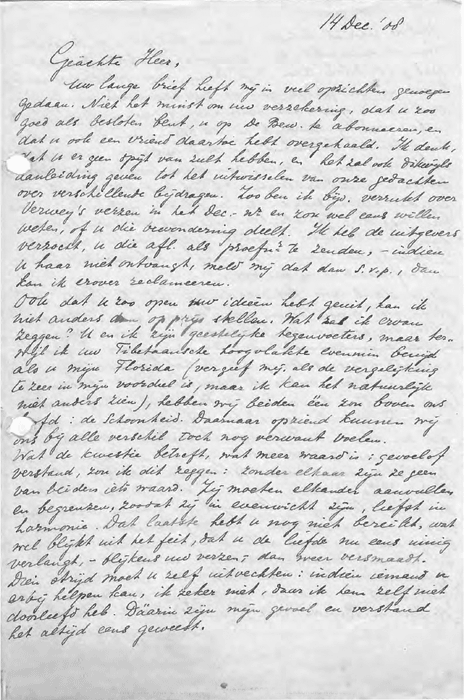 14 Dec. '08
Geachte Heer,
Uw lange brief heeft mij in veel opzichten genoegen
gedaan. Niet het minst om uw verzekering, dat u zoo
goed als besloten bent, u op De Bew. te abonneeren, en
dat u ook een vriend daartoe hebt overgehaald. Ik denk,
dat u er geen spijt van zult hebben, en het zal ook dikwijls
aanleiding geven tot het uitwisselen van onze gedachten
over verschillende bijdragen. Zoo ben ik bijv. verrukt over
Verwey's verzen in het Dec.-nr en zou wel eens willen
weten, of u die bewondering deelt. Ik heb de uitgevers
verzocht, u die afl. als "proefnr" te zenden, - indien
u haar niet ontvangt, meld mij dat dan s.v.p., dan
kan ik erover reclameeren.
Ook dat u zoo open uw ideeën hebt geuit, kan ik
niet anders dan op prijs stellen. Wat zal ik ervan
zeggen? U en ik zijn geestelijke tegenvoeters, maar ter-
wijl ik uw Tibetaansche hoogvlakte evenmin benijd
als u mijn Florida (vergeef mij, als de vergelijking
te zeer in mijn voordeel is, maar ik kan het natuurlijk
niet anders zien), hebben wij beiden één zon boven ons
hoofd: de Schoonheid. Daarnaar opziend kunnen wij
ons bij alle verschil toch nog verwant voelen.
Wat de kwestie betreft, wat meer waard is: gevoel of
verstand, zou ik dit zeggen: zonder elkaar zijn ze geen
van beiden iets waard. Zij moeten elkander aanvullen
en begrenzen, zoodat zij in evenwicht zijn, liefst in
harmonie. Dat laatste hebt u nog niet bereikt, wat
wel blijkt uit het feit, dat u de liefde nu eens innig
verlangt, - blijkens uw verzen, - dan weer versmaadt.
Dien strijd moet u zelf uitvechten: indien iemand u
erbij helpen kan, ik zeker niet, daar ik hem zelf niet
doorleefd heb. Dáárin zijn mijn gevoel en verstand
het altijd eens geweest.